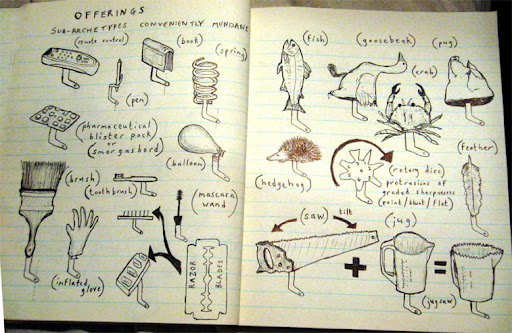 OFFERINGS
SUB-ARCHETYPES CONVENIENTLY MUNDANE
(remote control)
(book)
(spring)
(pen)
(pharmaceutical
blister pack)
or
(smorgasbord)
(balloon)
(brush)
(toothbrush)
(mascara
wand)
(inflated
glove)
RAZOR
BLADES
(fish)
(goosebeak)
(pug)
(crab)
(feather)
(hedgehog)
(rotary disc)
protrusions of
graded sharpness
(point/blunt/flat)
(saw)
tilt
(jug)
+
=
(jugsaw)